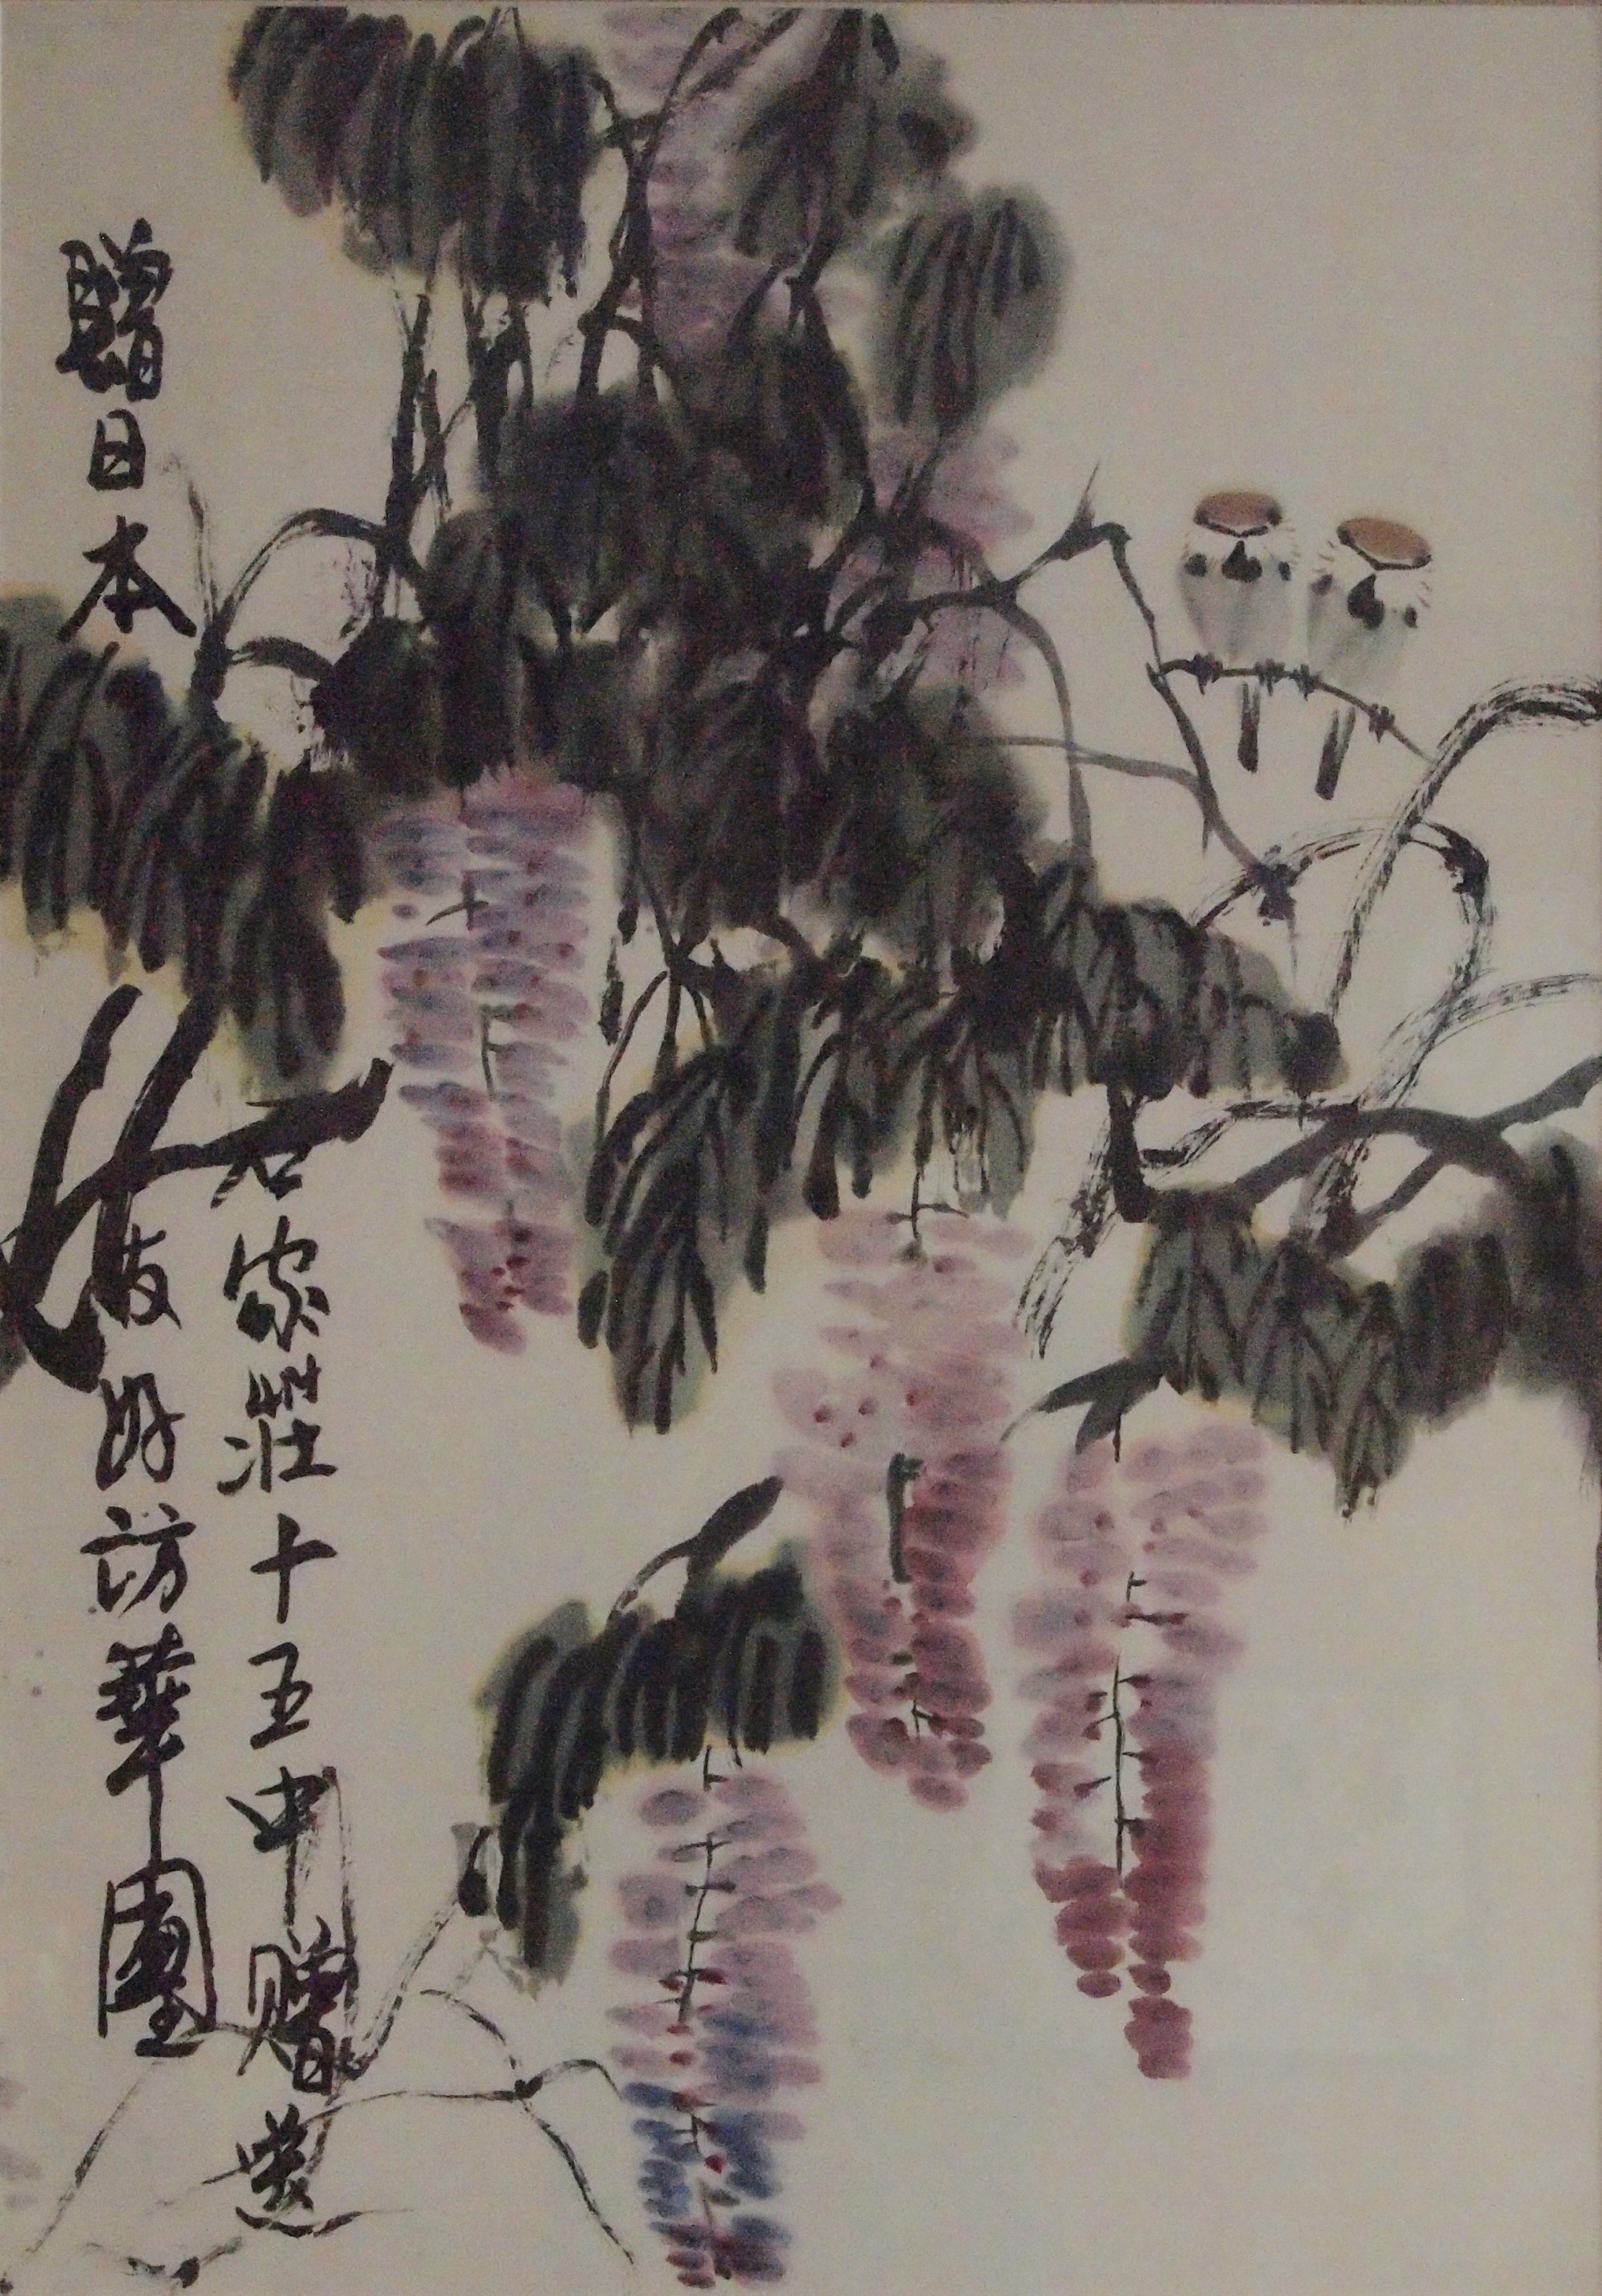 贈日本友好访華團
石家莊十五中赠送